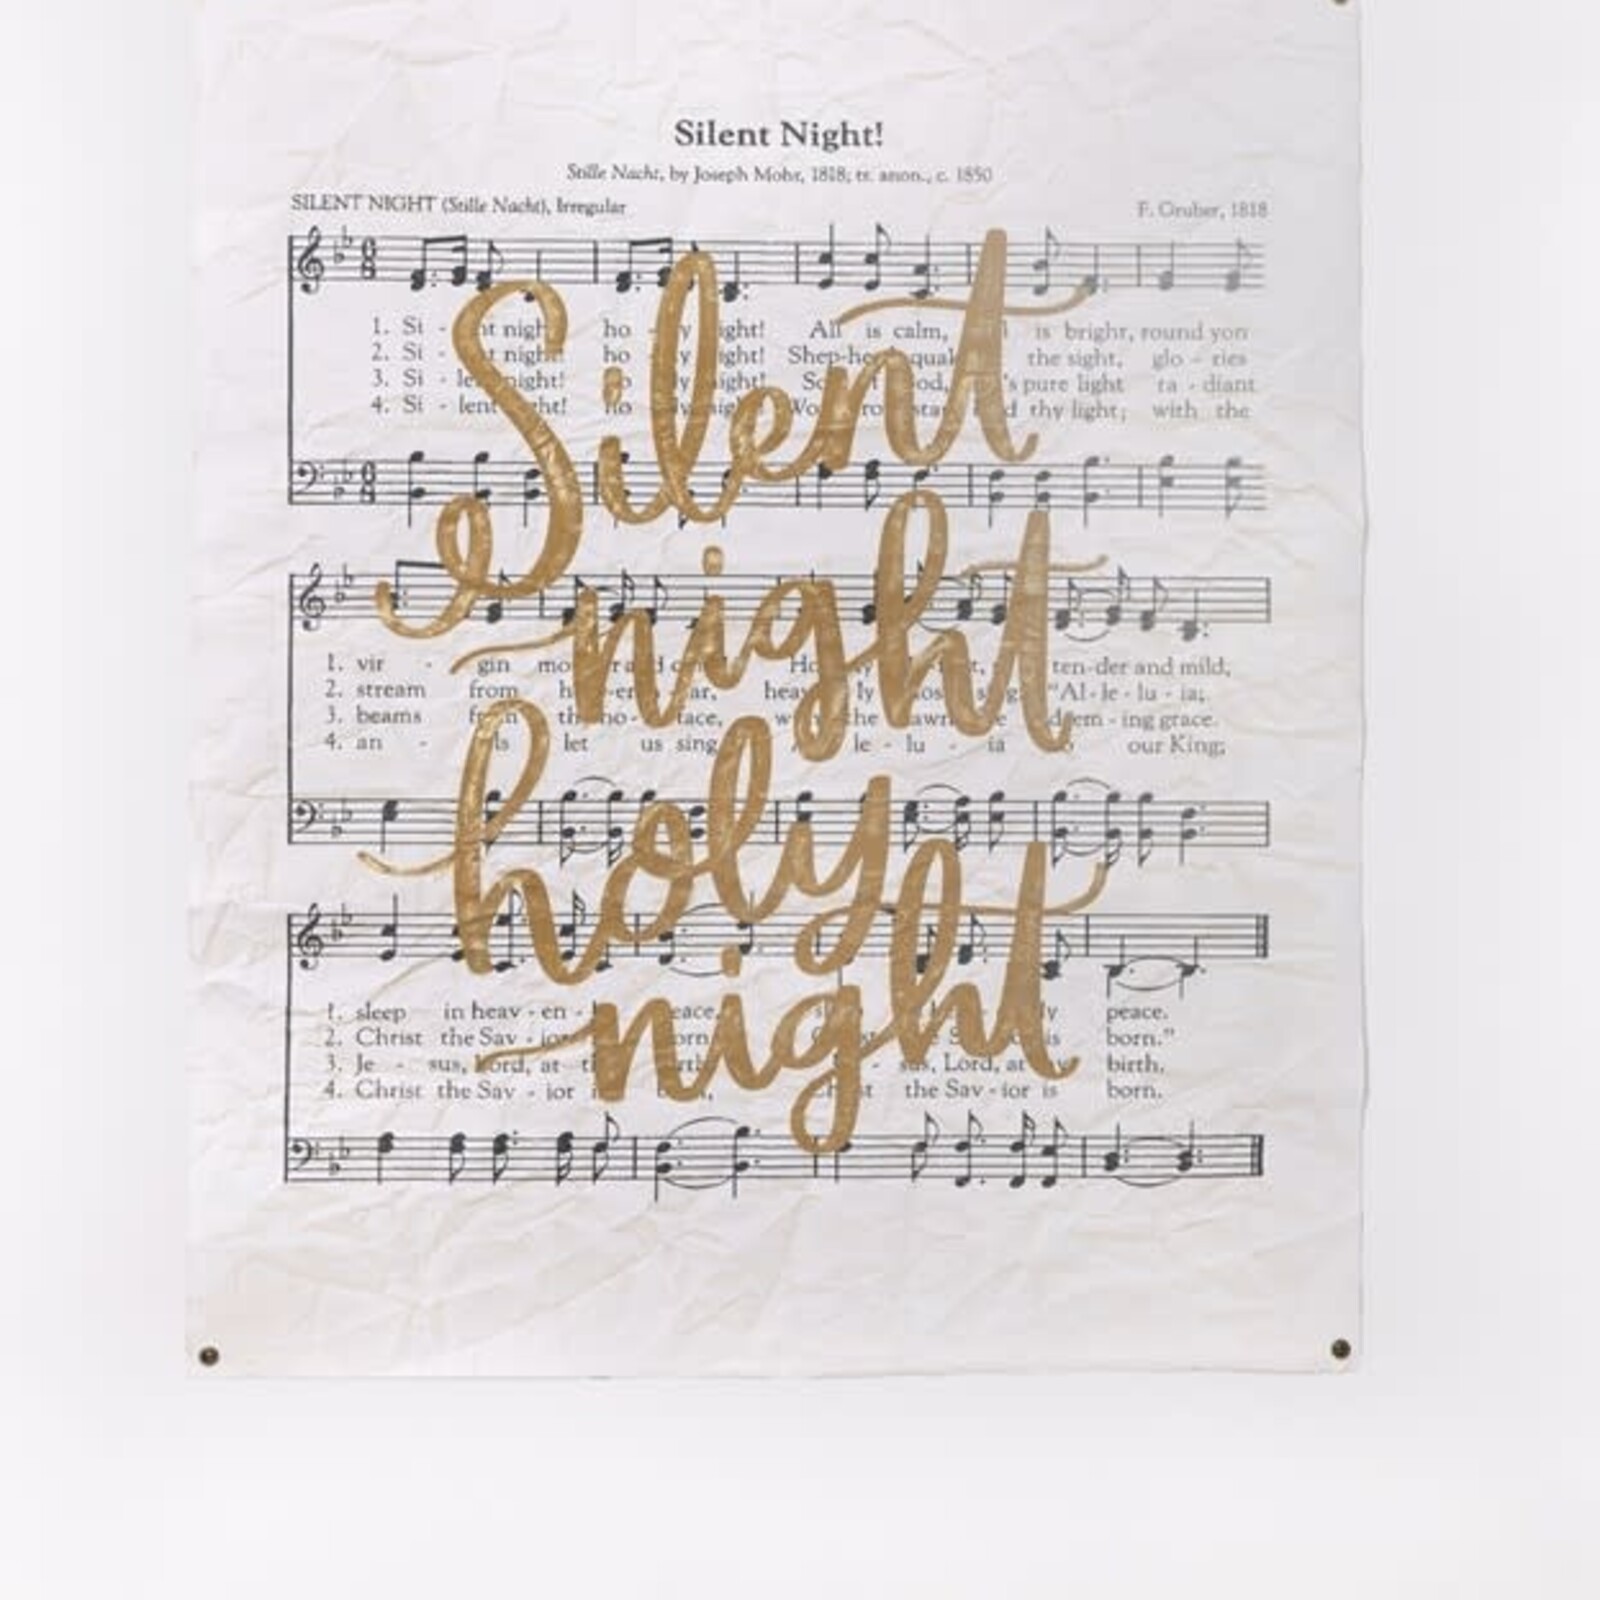 Silent Night!
Stille Nacht, by Joseph Mohr, 1818; tr. anon., c. 1850
SILENT NIGHT (Stille Nacht), Irregular
F. Gruber, 1818
Silent
night
holy
night
1. Si - night ho - ight! All is calm, is bright, round yon
2. Si - night ho - ight! Shep-he quak the sight, glo - ries
3. Si - le night! ly night! So od, 's pure light ra - diant
4. Si - lent ght! ho ly nigh Wo ro star d thy light; with the
1. vir - gin mo r a d c Ho y t, ten-der and mild,
2. stream from h -en ar, heav ly os s g "Al - le - lu - ia;
3. beams fr m th ho - face, w the awn e d em - ing grace.
4. an - ls let us sing le - lu - ia our King;
1. sleep in heav - en - eace, ly peace.
2. Christ the Sav - ior orn is born."
3. Je - sus, Lord, at th irth - sus, Lord, at y birth.
4. Christ the Sav - ior i b , Ch st the Sav - ior is born.